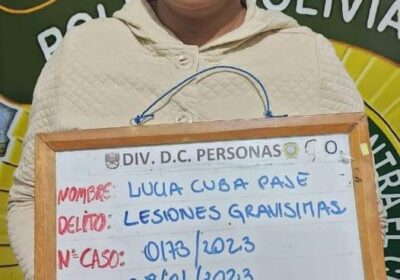 BOLIVIA
DIV. D.C. PERSONAS
NOMBRE: LUCIA CUBA PAJE
DELITO: LESIONES GRAVISIMAS
N° CASO: 0173/2023
/01/2023